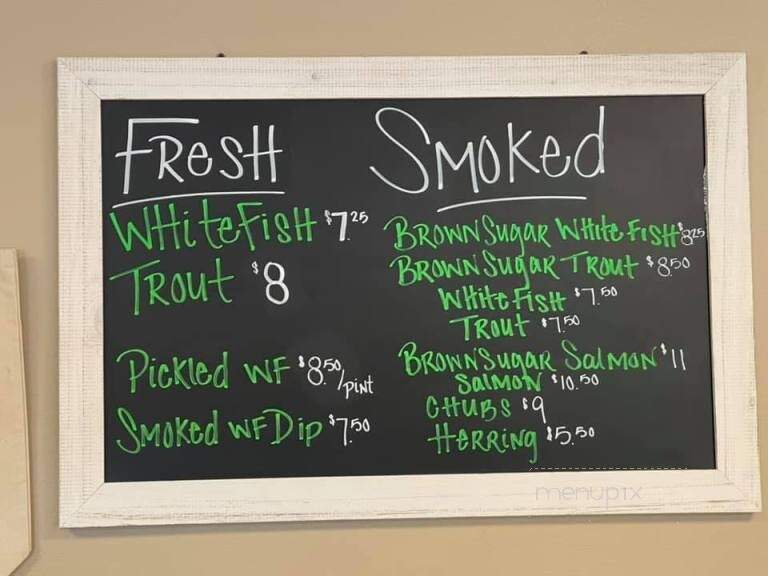 FResH
WHiteFisH $7.25
TRout $8
Pickled WF $8.50/pint
Smoked WF Dip $7.50
Smoked
BROWN Sugar White Fish $8.25
BROWN Sugar Trout $8.50
White Fish $7.50
Trout $7.50
BROWN Sugar Salmon $11
Salmon $10.50
CHUBS $9
Herring $5.50
menupix